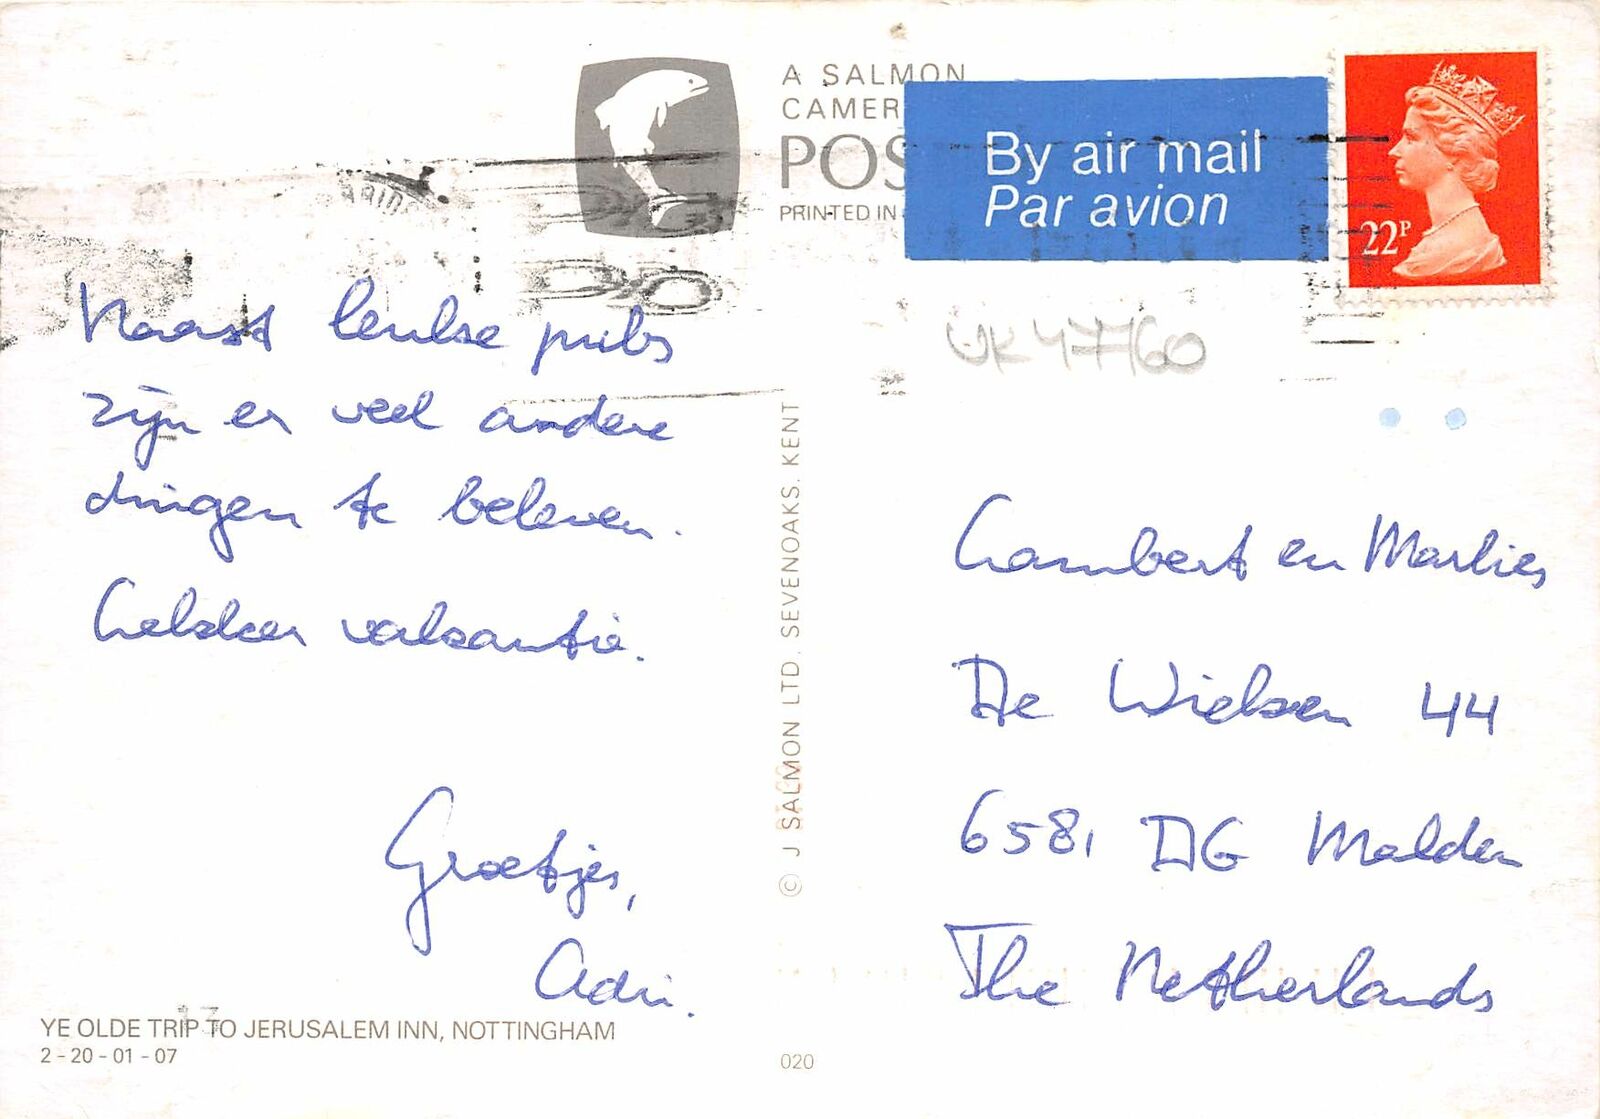 A SALMON
CAMER
POS
PRINTED IN
By air mail
Par avion
22P
UK47760
Naast leuke pubs
zijn er veel andere
dingen te beleven.
Lekker vakantie.
Groetjes,
Adri.
© J SALMON LTD. SEVENOAKS. KENT
Lambert en Marlies
De Wielsen 44
6581 DG Malden
The Netherlands
YE OLDE TRIP TO JERUSALEM INN, NOTTINGHAM
2 - 20 - 01 - 07
020